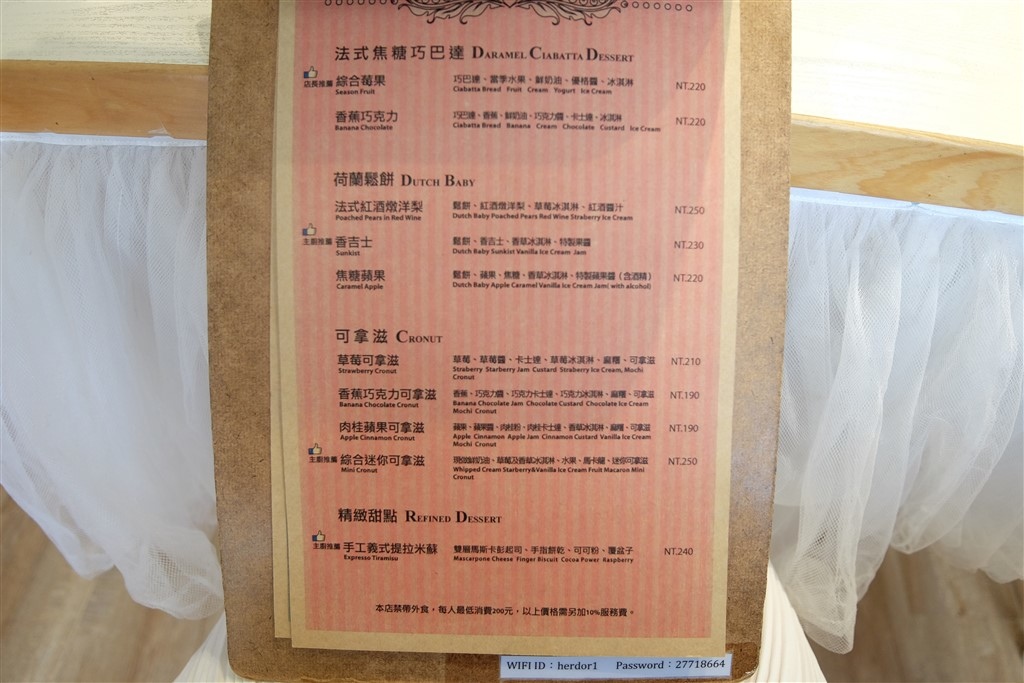 法式焦糖巧巴達 DARAMEL CIABATTA DESSERT
店長推薦 綜合莓果 巧巴達、當季水果、鮮奶油、優格醬、冰淇淋 NT.220
Season Fruit Ciabatta Bread Fruit Cream Yogurt Ice Cream
香蕉巧克力 巧巴達、香蕉、鮮奶油、巧克力醬、卡士達、冰淇淋 NT.220
Banana Chocolate Ciabatta Bread Banana Cream Chocolate Custard Ice Cream
荷蘭鬆餅 DUTCH BABY
法式紅酒燉洋梨 鬆餅、紅酒燉洋梨、草莓冰淇淋、紅酒醬汁 NT.250
Poached Pears in Red Wine Dutch Baby Poached Pears Red Wine Straberry Ice Cream
主廚推薦 香吉士 鬆餅、香吉士、香草冰淇淋、特製果醬 NT.230
Sunkist Dutch Baby Sunkist Vanilla Ice Cream Jam
焦糖蘋果 鬆餅、蘋果、焦糖、香草冰淇淋、特製蘋果醬（含酒精） NT.220
Caramel Apple Dutch Baby Apple Caramel Vanilla Ice Cream Jam( with alcohol)
可拿滋 CRONUT
草莓可拿滋 草莓、草莓醬、卡士達、草莓冰淇淋、麻糬、可拿滋 NT.210
Strawberry Cronut Straberry Starberry Jam Custard Straberry Ice Cream, Mochi
Cronut
香蕉巧克力可拿滋 香蕉、巧克力醬、巧克力卡士達、巧克力冰淇淋、麻糬、可拿滋 NT.190
Banana Chocolate Cronut Banana Chocolate Jam Chocolate Custard Chocolate Ice Cream
Mochi Cronut
肉桂蘋果可拿滋 蘋果、蘋果醬、肉桂粉、肉桂卡士達、香草冰淇淋、麻糬、可拿滋 NT.190
Apple Cinnamon Cronut Apple Cinnamon Apple Jam Cinnamon Custard Vanilla Ice Cream
Mochi Cronut
主廚推薦 綜合迷你可拿滋 現做鮮奶油、草莓及香草冰淇淋、水果、馬卡龍、迷你可拿滋 NT.250
Mini Cronut Whipped Cream Starberry&Vanilla Ice Cream Fruit Macaron Mini
Cronut
精緻甜點 REFINED DESSERT
主廚推薦 手工義式提拉米蘇 雙層馬斯卡彭起司、手指餅乾、可可粉、覆盆子 NT.240
Expresso Tiramizu Mascarpone Cheese Finger Biscuit Cocoa Power Raspberry
本店禁帶外食，每人最低消費200元，以上價格需另加10%服務費。
WIFI ID：herdor1 Password：27718664